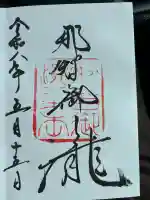 那智御瀧
令和八年五月十三日